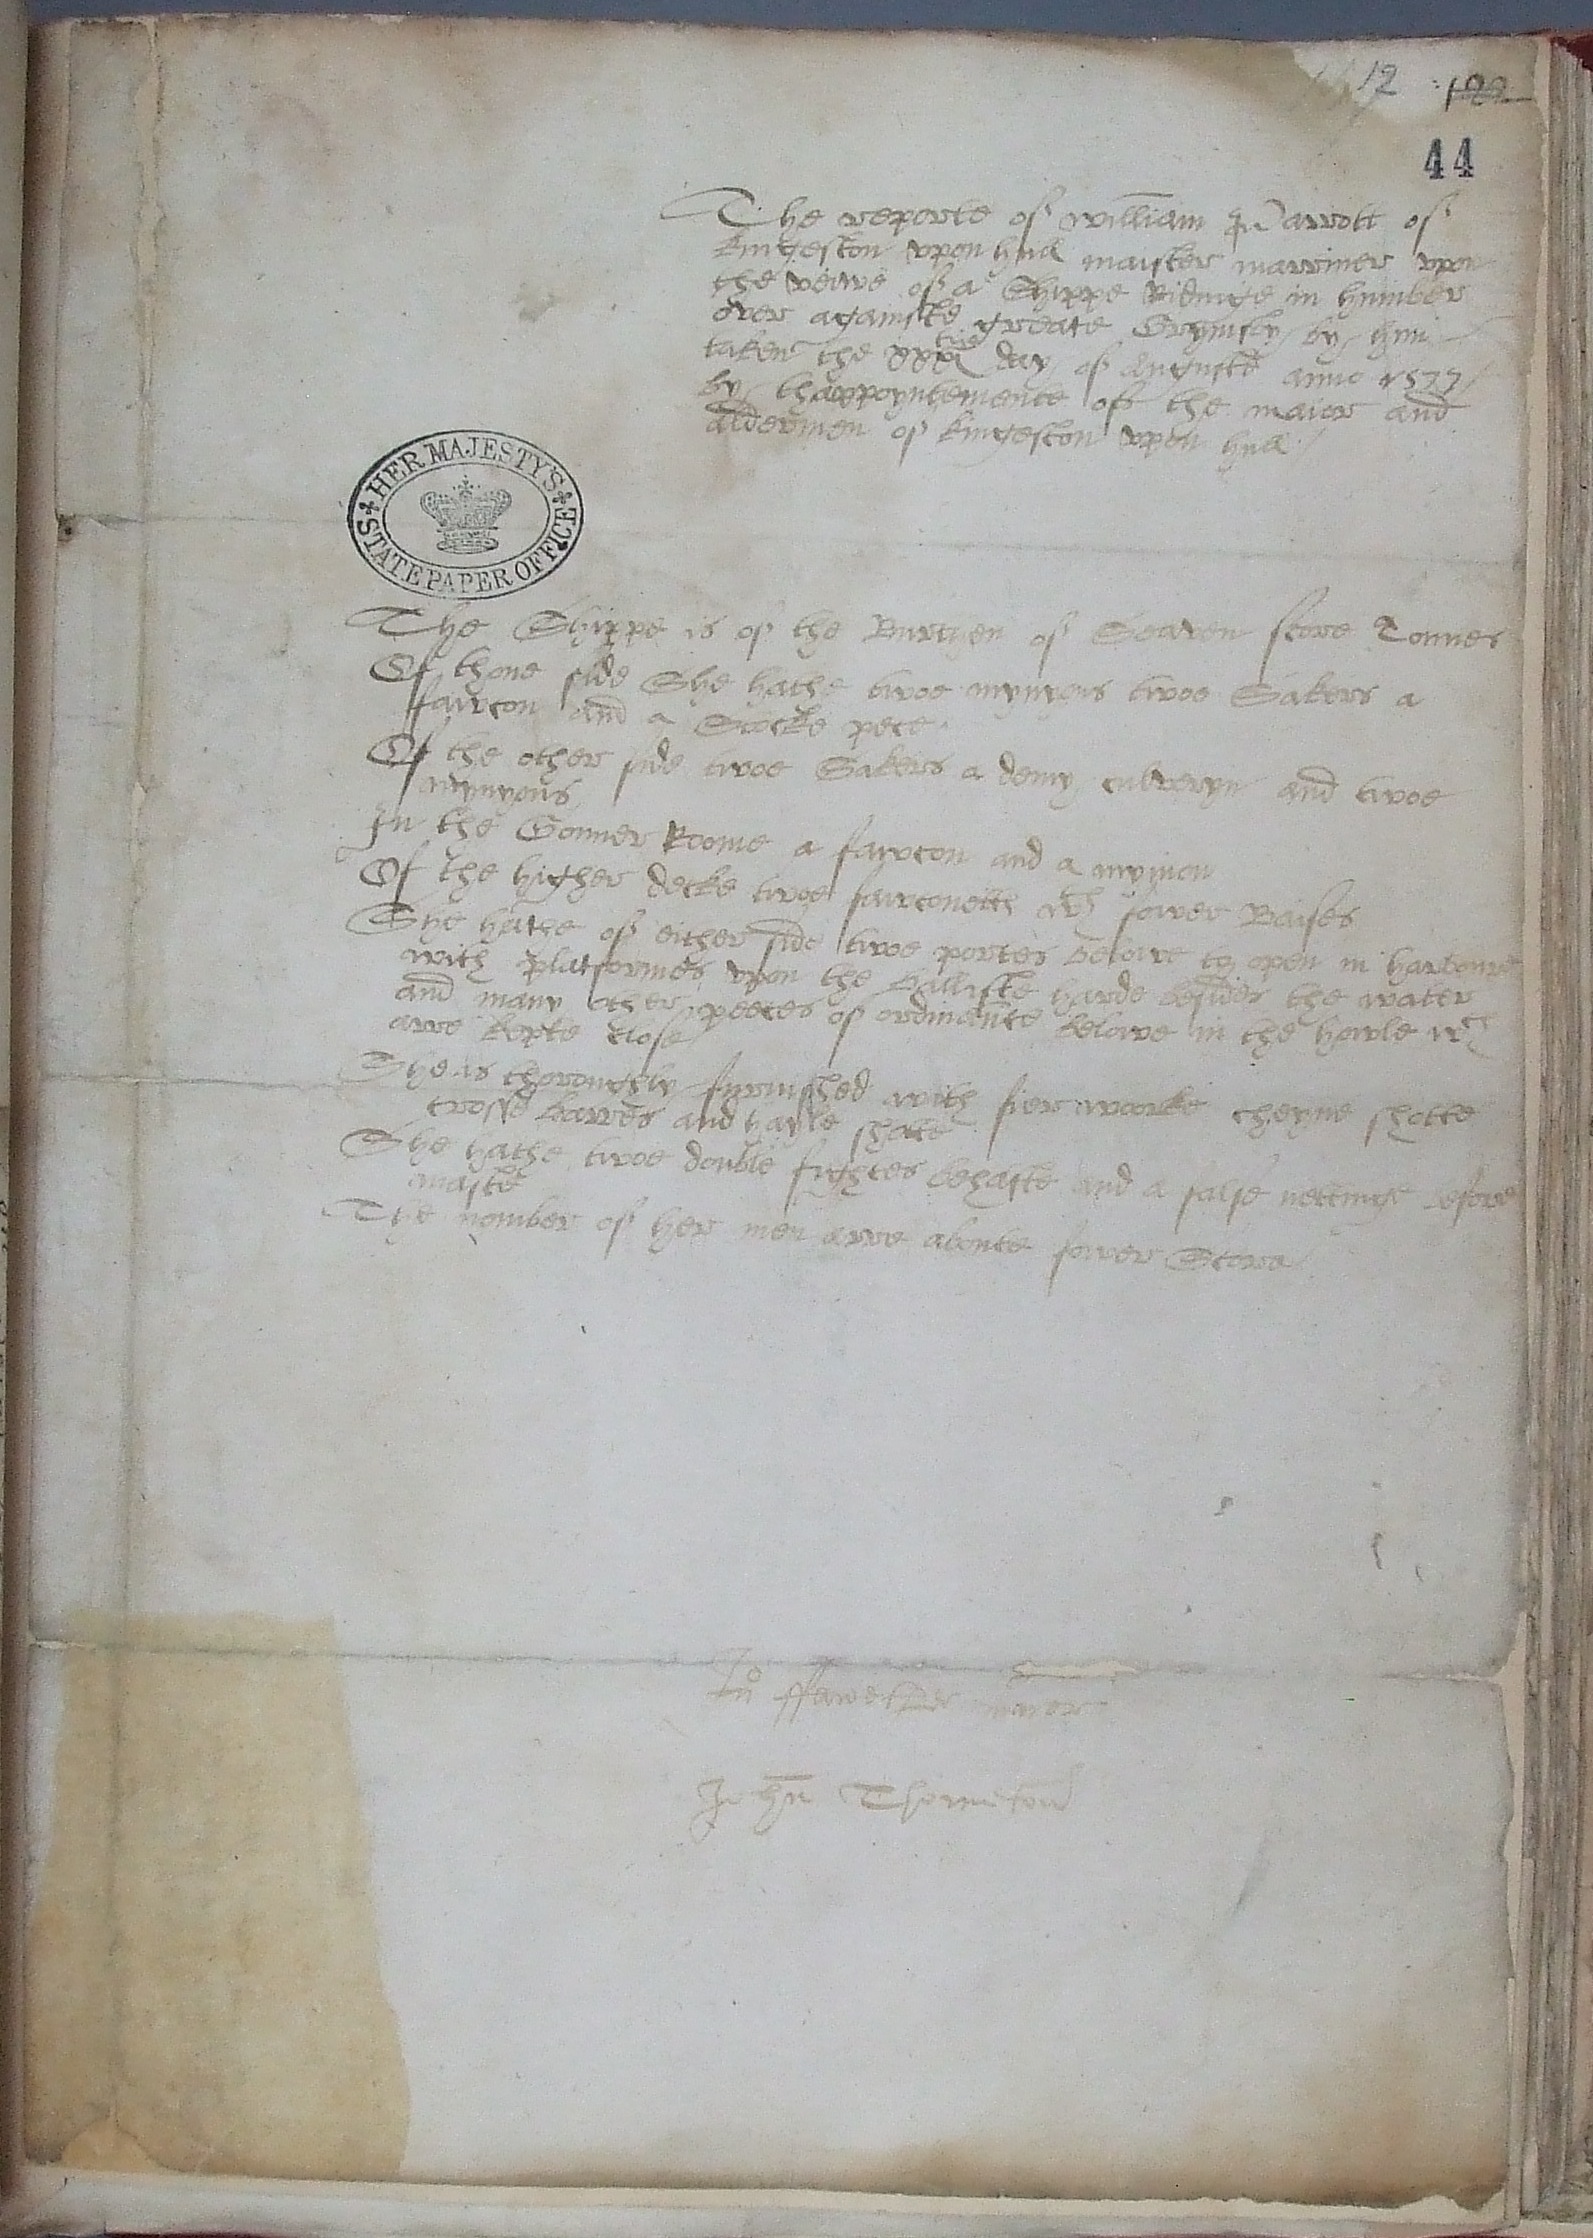 12 122
44
The reporte of William Parrott of
kingeston vpon hull maister marriner vpon
the veiwe of a Shippe Ridinge in humber
over againste greate Grymsby by him
taken the xxxi day of Auguste anno 1577
by thappoyntemente of the maior and
aldermen of kingeston vpon hull
HER MAJESTY'S STATE PAPER OFFICE
The Shippe is of the Burthen of Seaven score Tonnes
Of thone side She hathe twoe mynyons twoe Sakers a
fawcon and a Stocke pece
Of the other side twoe Sakers a demy culveryn and twoe
mynyons
In the Gonner Roome a fawcon and a mynion
Of the higher decke twoe fawconetts wth fower Baises
She hathe of either side twoe portes belowe to open in harboure
with platformes vpon the balliste harde besides the water
and many other peeces of ordinante belowe in the howle wch
arre kepte close
She is thoroughly furnished with fier woorke cheyne shotte
crosse barres and hayle shotte
She hathe twoe double fightes behafte and a false nettinge before
maste
The nomber of her men arre aboute fower Score
Jno ffawether maior
John Thorneton